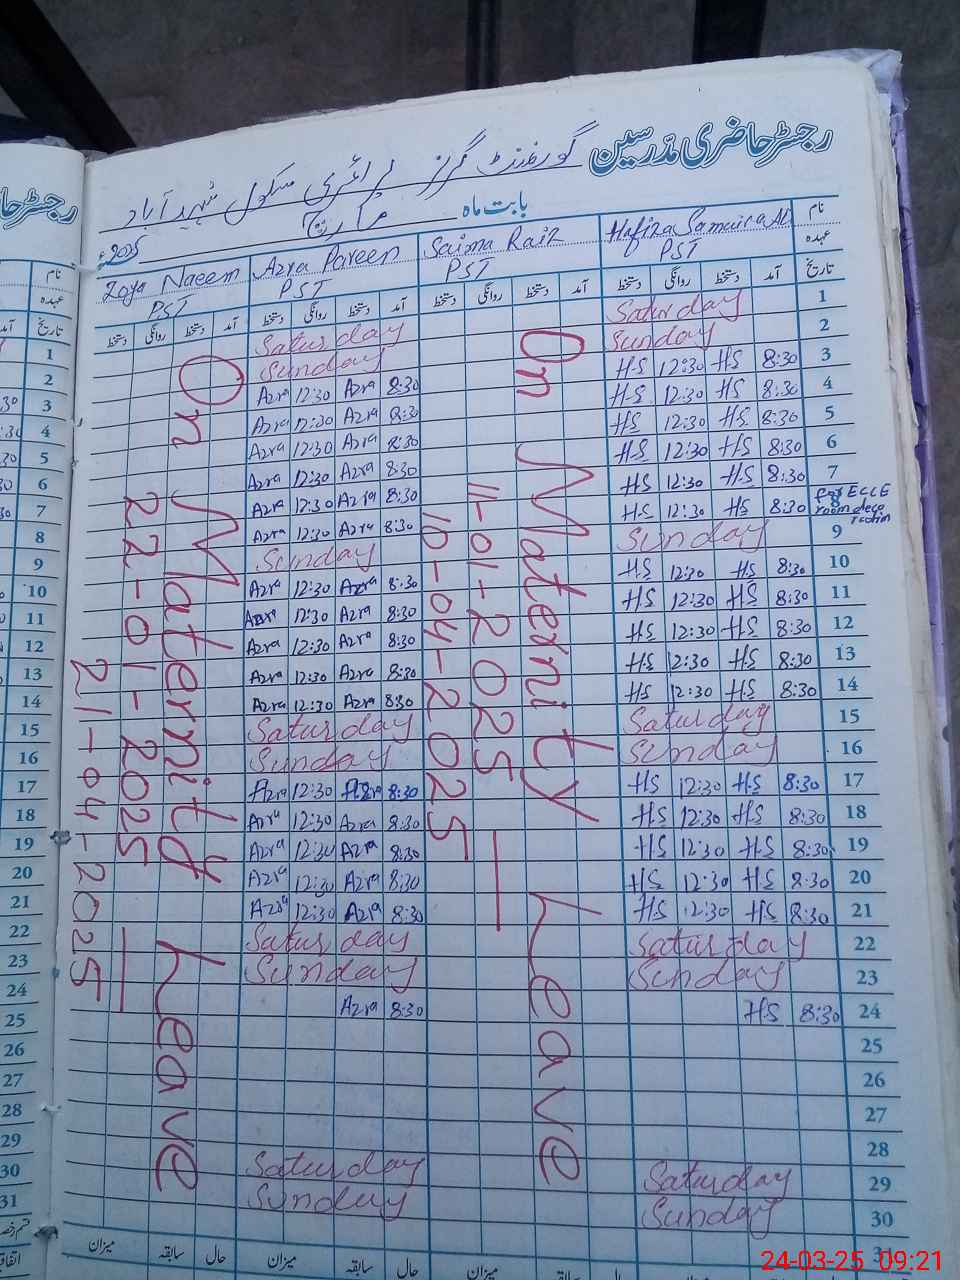 رجسٹر حاضری مدرسین
گورنمنٹ گرلز پرائمری سکول شہید آباد
بابت ماہ مارچ 2025ء
نام Hafiza Samaira Ali Saima Raiz Azra Parveen Zoya Naeem
عہدہ PST PST PST PST
تاریخ آمد دستخط روانگی دستخط آمد دستخط روانگی دستخط آمد دستخط روانگی دستخط آمد دستخط روانگی دستخط
1 Saturday Saturday
2 Sunday Sunday
3 8:30 HS 12:30 HS 8:30 Azra 12:30 Azra
4 8:30 HS 12:30 HS 8:30 Azra 12:30 Azra
5 8:30 HS 12:30 HS 8:30 Azra 12:30 Azra
6 8:30 HS 12:30 HS 8:30 Azra 12:30 Azra
7 8:30 HS 12:30 HS 8:30 Azra 12:30 Azra
8 for ECCE room 8:30 HS 12:30 HS 8:30 Azra 12:30 Azra
9 Sunday Sunday
10 8:30 HS 12:30 HS 8:30 Azra 12:30 Azra
11 8:30 HS 12:30 HS 8:30 Azra 12:30 Azra
12 8:30 HS 12:30 HS 8:30 Azra 12:30 Azra
13 8:30 HS 12:30 HS 8:30 Azra 12:30 Azra
14 8:30 HS 12:30 HS 8:30 Azra 12:30 Azra
15 Saturday Saturday
16 Sunday Sunday
17 8:30 HS 12:30 HS 8:30 Azra 12:30 Azra
18 8:30 HS 12:30 HS 8:30 Azra 12:30 Azra
19 8:30 HS 12:30 HS 8:30 Azra 12:30 Azra
20 8:30 HS 12:30 HS 8:30 Azra 12:30 Azra
21 8:30 HS 12:30 HS 8:30 Azra 12:30 Azra
22 Saturday Saturday
23 Sunday Sunday
24 8:30 HS 8:30 Azra
25
26
27
28
29 Saturday Saturday
30 Sunday Sunday
31
On Maternity Leave
11-01-2025
10-04-2025
On Maternity Leave
22-01-2025
21-04-2025
حال سابقہ میزان حال سابقہ میزان
نام
عہدہ
تاریخ
1
2
3
4
5
6
7
8
9
10
11
12
13
14
15
16
17
18
19
20
21
22
23
24
25
26
27
28
29
30
31
24-03-25 09:21